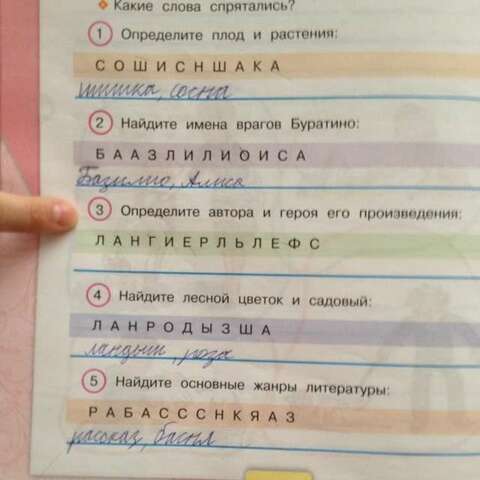 Какие слова спрятались?
1 Определите плод и растения:
СОШИСНШАКА
шишка, сосна
2 Найдите имена врагов Буратино:
БААЗЛИЛИОИСА
Базилио, Алиса
3 Определите автора и героя его произведения:
ЛАНГИЕРЛЬЛЕФС
4 Найдите лесной цветок и садовый:
ЛАНРОДЫЗША
ландыш, роза
5 Найдите основные жанры литературы:
РАБАСССНКЯАЗ
рассказ, басня